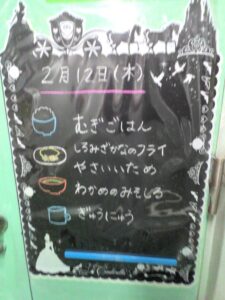 2月12日(木)
むぎごはん
しろみざかなのフライ
やさいいため
わかめのみそしる
ぎゅうにゅう